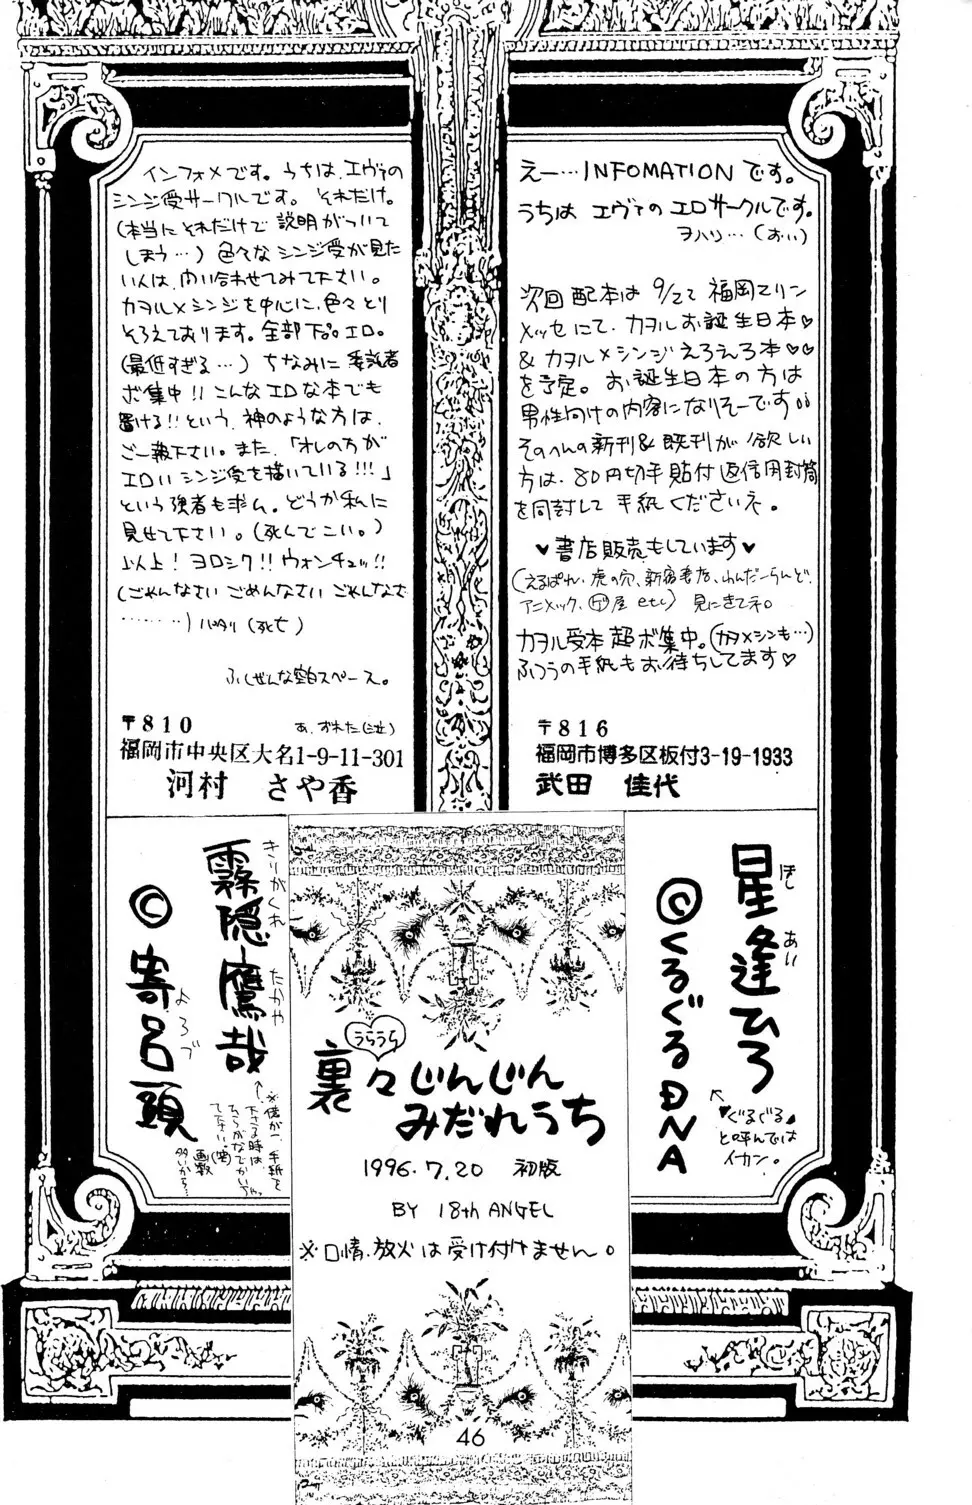 インフォメです。うちは、エヴァの
シンジ受サークルです。それだけ。
(本当にそれだけで説明がついて
しまう…)色々なシンジ受が見た
い人は、問い合わせてみて下さい。
カヲル×シンジを中心に、色々とり
そろえております。全部下品。エロ。
(最低すぎる…)ちなみに委託者
ボ集中!!こんなエロな本でも
置ける!!という、神のような方は、
ご一報下さい。また、「オレの方が
エロいシンジ受を描いている!!!」
という強者も求ム。どうか私に
見せて下さい。(死んでこい。)
以上!ヨロシク!!ウォンチュッ!!
(ごめんなさい ごめんなさい ごめんなさ
………)バタリ(死亡)
ふしぜんな空白スペース。
〒810 あ、ずれた(泣)
福岡市中央区大名1-9-11-301
河村 さや香
えー…INFOMATIONです。
うちは エヴァのエロサークルです。
ヲハリ…(おい)
次回配本は 9/22 福岡マリン
メッセにて、カヲルお誕生日本♡
&カヲル×シンジえろえろ本♡♡
を予定。お誕生日本の方は
男性向けの内容になりそーです
そのへんの新刊&既刊が欲しい
方は、80円切手貼付返信用封筒
を同封して 手紙くださいネ。
♥書店販売もしています♥
(えるぱれ、虎の穴、新宿書店、わんだーらんど、
アニメック、ゲ屋 etc) 見にきてネ。
カヲル受本 超ボ集中。(カヲ×シンも…)
ふつうの手紙もお待ちしてます♡
〒816
福岡市博多区板付3-19-1933
武田 佳代
霧隠鷹哉
きりがくれ たかや
©寄呂頭
よろず
裏々じんじん
うらうら
みだれうち
1996.7.20 初版
BY 18th ANGEL
※口情、放火は受け付けません。
46
星逢ひろ
ほし あい
©くるぐるDNA
↖♥ぐるぐる♥
と呼んでは
イカン。